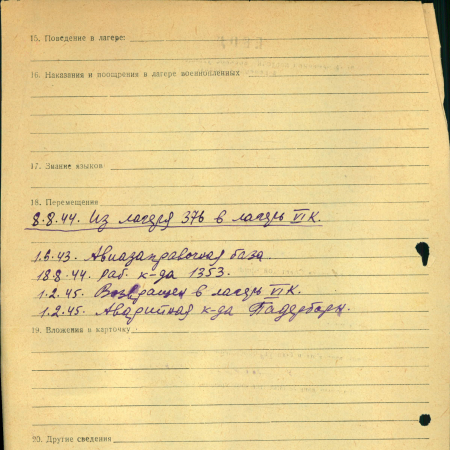 15. Поведение в лагере:
16. Наказания и поощрения в лагере военнопленных
17. Знание языков:
18. Перемещение
8.8.44. Из лагеря 376 в лагерь VI К.
1.6.43. Авиазаправочная база
18.8.44. раб. к-да 1353.
1.2.45. Возвращен в лагерь VI К.
1.2.45. Аварийная к-да Паддерборн.
19. Вложения в карточку
20. Другие сведения